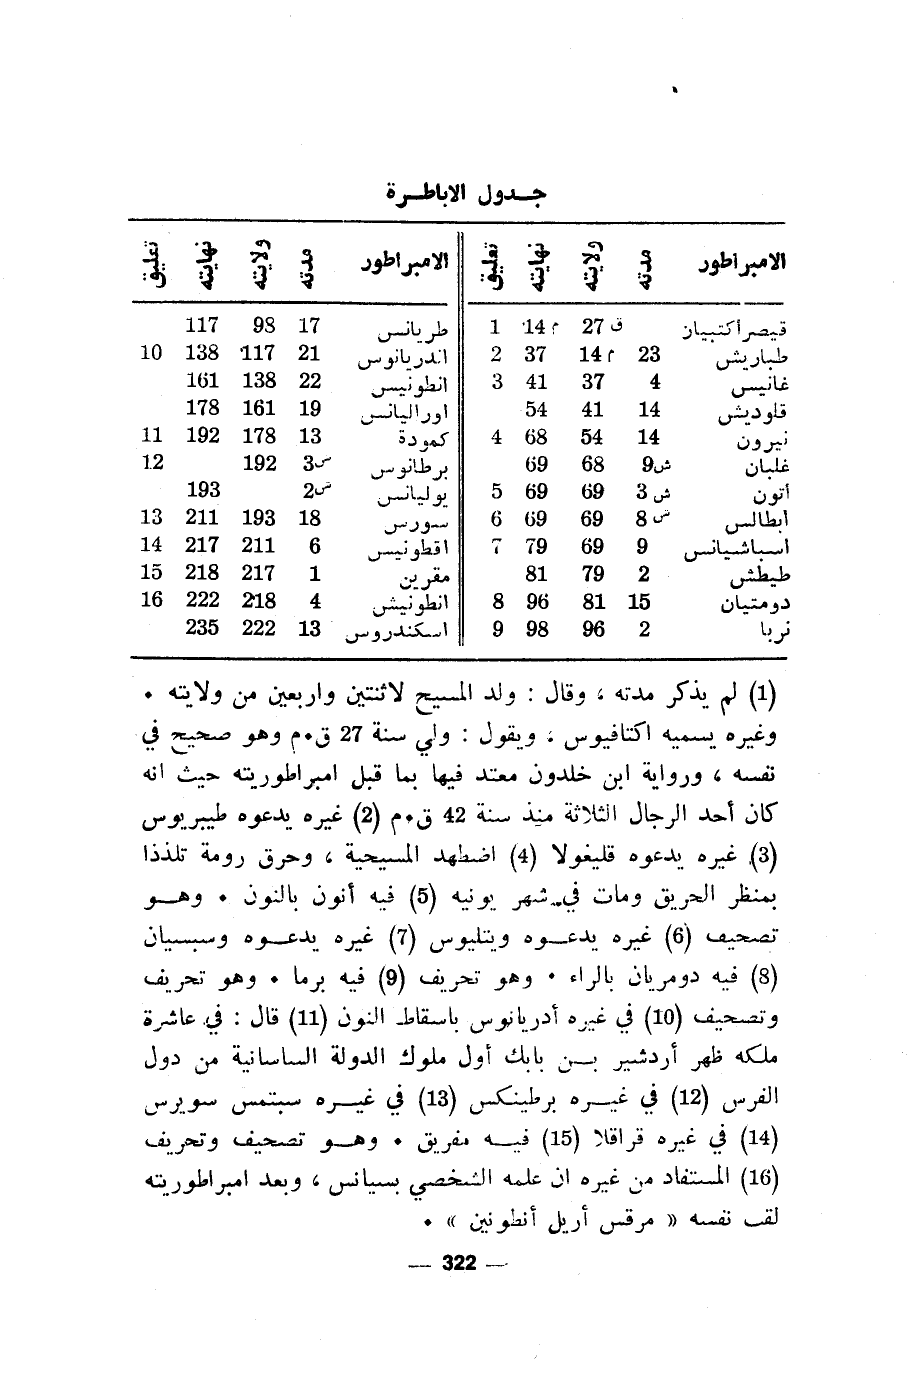 جـدول الاباطـرة
الامبراطور مدته ولايته نهايته تعليق الامبراطور مدته ولايته نهايته تعليق
قيصر أكتبيان ق 27 م 14 1 طريانس 17 98 117
طباريش 23 م 14 37 2 اندريانوس 21 117 138 10
غانيس 4 37 41 3 انطونيس 22 138 161
قلوديش 14 41 54 اوراليانس 19 161 178
نيرون 14 54 68 4 كمودة 13 178 192 11
غلبان ش9 68 69 برطانوس ش3 192 12
أتون ش 3 69 69 5 يوليانس ش2 193
ابطالس ش 8 69 69 6 سورس 18 193 211 13
اسباشيانس 9 69 79 7 اقطونيس 6 211 217 14
طيطش 2 79 81 مقرين 1 217 218 15
دومتيان 15 81 96 8 انطونيش 4 218 222 16
نربا 2 96 98 9 اسكندروس 13 222 235
(1) لم يذكر مدته ، وقال : ولد المسيح لاثنتين واربعين من ولايته .
وغيره يسميه اكتافيوس ، ويقول : ولي سنة 27 ق.م وهو صحيح في
نفسه ، ورواية ابن خلدون معتد فيها بما قبل امبراطوريته حيث انه
كان أحد الرجال الثلاثة منذ سنة 42 ق.م (2) غيره يدعوه طيبريوس
(3) غيره يدعوه قليغولا (4) اضطهد المسيحية ، وحرق رومة تلذذا
بمنظر الحريق ومات في شهر يونيه (5) فيه أنون بالنون . وهـو
تصحيف (6) غيره يدعـوه ويتليوس (7) غيره يدعـوه وسبسيان
(8) فيه دومريان بالراء . وهو تحريف (9) فيه برما . وهو تحريف
وتصحيف (10) في غيره أدريانوس باسقاط النون (11) قال : في عاشرة
ملكه ظهر أردشير بـن بابك أول ملوك الدولة الساسانية من دول
الفرس (12) في غيـره برطينكس (13) في غيـره سبتمس سويرس
(14) في غيره قراقلا (15) فيـه مفريق . وهـو تصحيف وتحريف
(16) المستفاد من غيره ان علمه الشخصي بسيانس ، وبعد امبراطوريته
لقب نفسه « مرقس أريل أنطونين » .
— 322 —